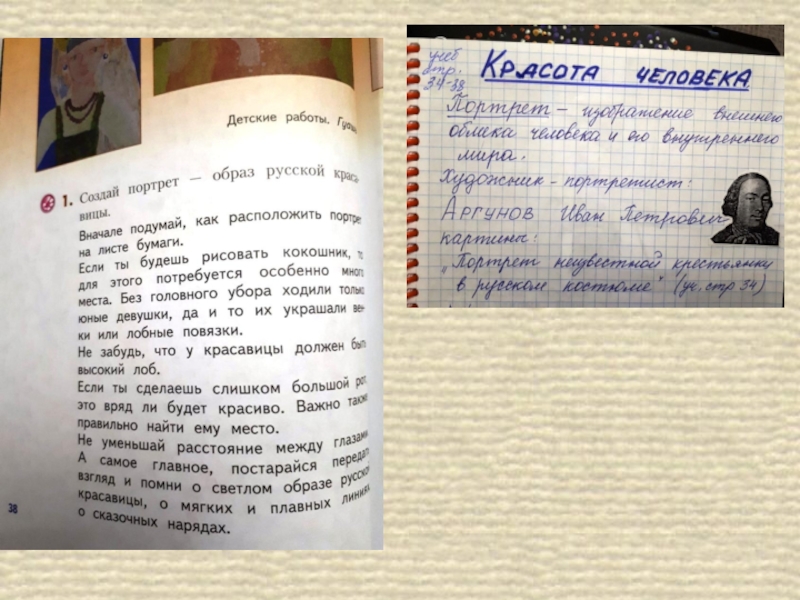 Детские работы. Гуашь
1. Создай портрет — образ русской краса-
вицы.
Вначале подумай, как расположить портрет
на листе бумаги.
Если ты будешь рисовать кокошник, то
для этого потребуется особенно много
места. Без головного убора ходили только
юные девушки, да и то их украшали вен-
ки или лобные повязки.
Не забудь, что у красавицы должен быть
высокий лоб.
Если ты сделаешь слишком большой рот,
это вряд ли будет красиво. Важно также
правильно найти ему место.
Не уменьшай расстояние между глазами.
А самое главное, постарайся передать
взгляд и помни о светлом образе русской
красавицы, о мягких и плавных линиях,
о сказочных нарядах.
38
учеб
стр.
34-38
Красота человека
Портрет – изображение внешнего
облика человека и его внутреннего
мира.
Художник - портретист:
Аргунов Иван Петрович
картины:
„Портрет неизвестной крестьянки
в русском костюме" (уч. стр 34)